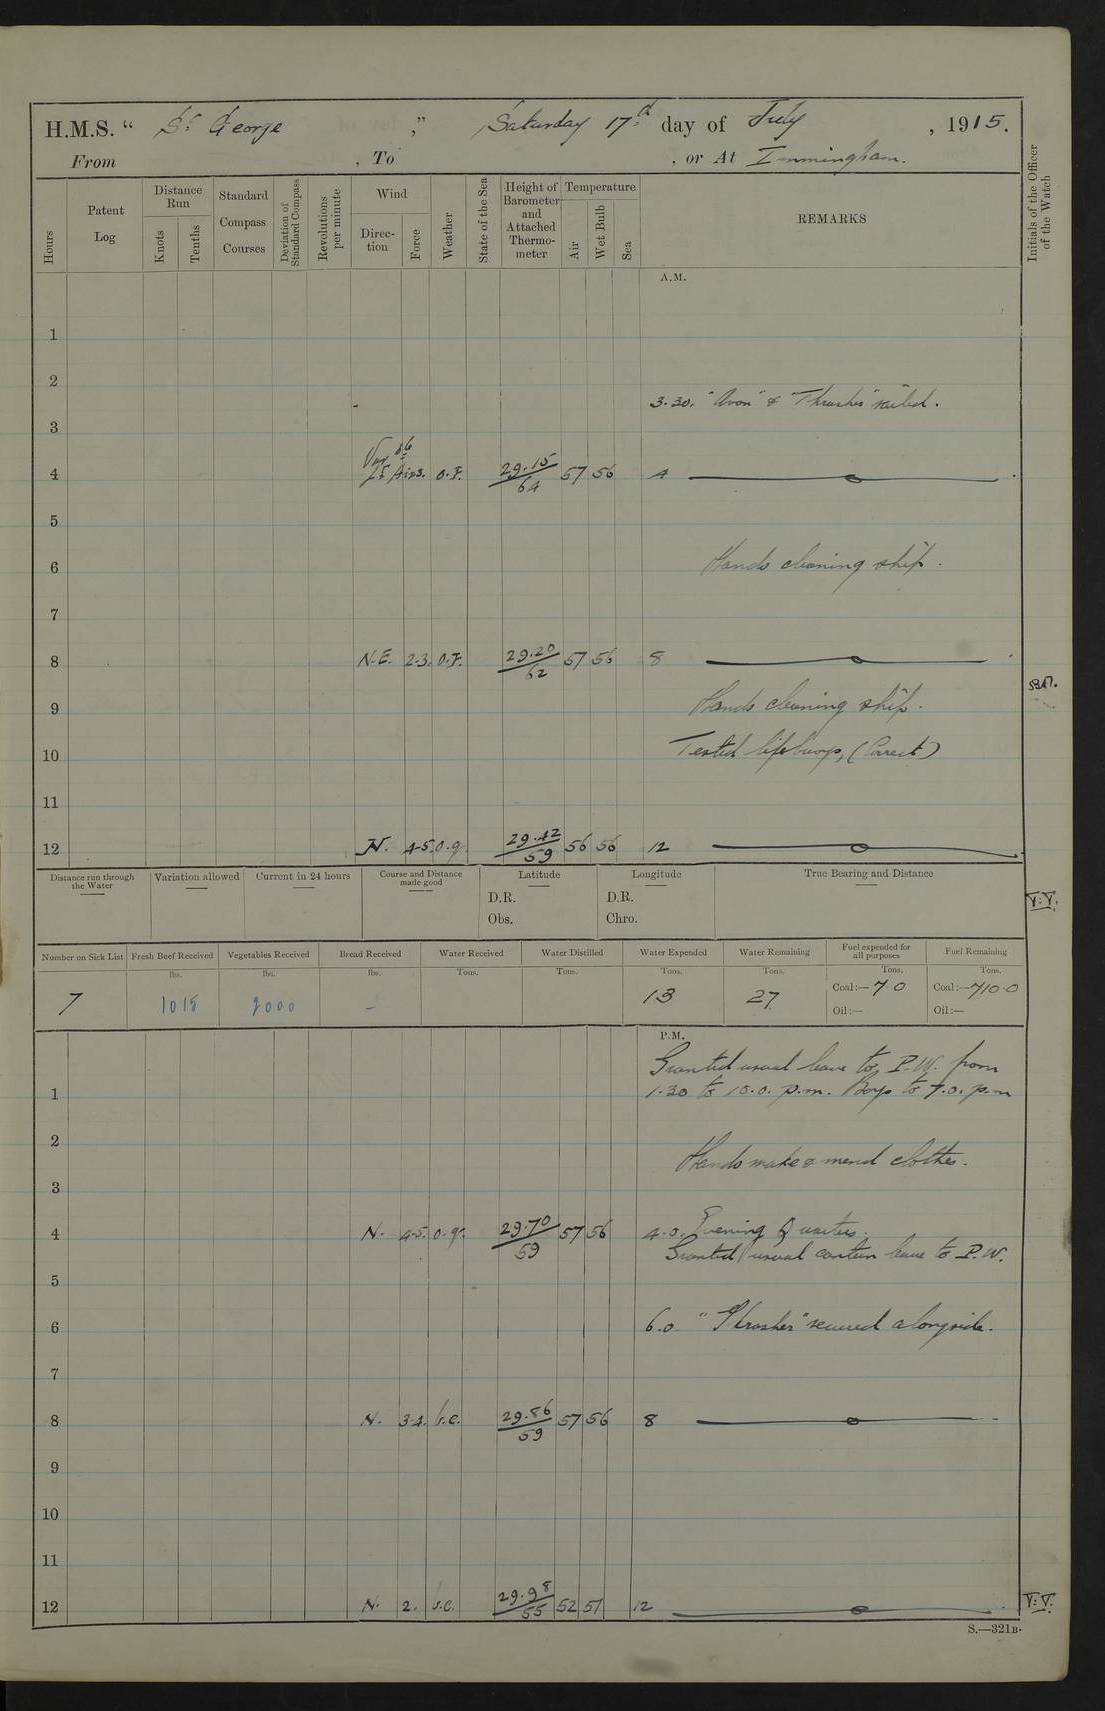 H.M.S. “ St George ,” Saturday 17th day of July , 1915.
From , To , or At Immingham.
Hours
Patent Log
Distance Run
Knots
Tenths
Standard Compass Courses
Deviation of Standard Compass
Revolutions per minute
Wind
Direction
Force
Weather
State of the Sea
Height of Barometer and Attached Thermometer
Temperature
Air
Wet Bulb
Sea
REMARKS
Initials of the Officer of the Watch
A.M.
1
2
3.30. "Avon" & "Thrasher" sailed.
3
Var ble
4 Lt Airs. o.F. 29.15/64 57 56 4
5
6 Hands cleaning ship.
7
8 N.E. 2-3. o.F. 29.20/62 57 56 8
9 Hands cleaning ship.
10 Tested lifebuoys, (Correct)
11
12 N. 4-5. o.g 29.42/59 56 56 12
Distance run through the Water
Variation allowed
Current in 24 hours
Course and Distance made good
Latitude
D.R.
Obs.
Longitude
D.R.
Chro.
True Bearing and Distance
V.V.
Number on Sick List
Fresh Beef Received
Vegetables Received
Bread Received
Water Received
Water Distilled
Water Expended
Water Remaining
Fuel expended for all purposes
Fuel Remaining
lbs. lbs. lbs. Tons. Tons. Tons. Tons. Tons. Tons.
7 1015 2000 - 13 27 Coal:— 70 Coal:— 7100
Oil:— Oil:—
P.M.
Granted usual leave to P.W. from
1 1.30 to 10.0. p.m. Boys to 7.0. p.m
2 Hands make & mend clothes.
3
4 N. 4-5. o.q. 29.70/59 57 56 4.0. Evening Quarters.
Granted usual canteen leave to P.W.
5
6 6.0 "Thrasher" secured alongside.
7
8 N. 3-4. b.c. 29.86/59 57 56 8
9
10
11
12 N. 2. b.c. 29.98/55 52 51 12
V.V.
S.—321B.